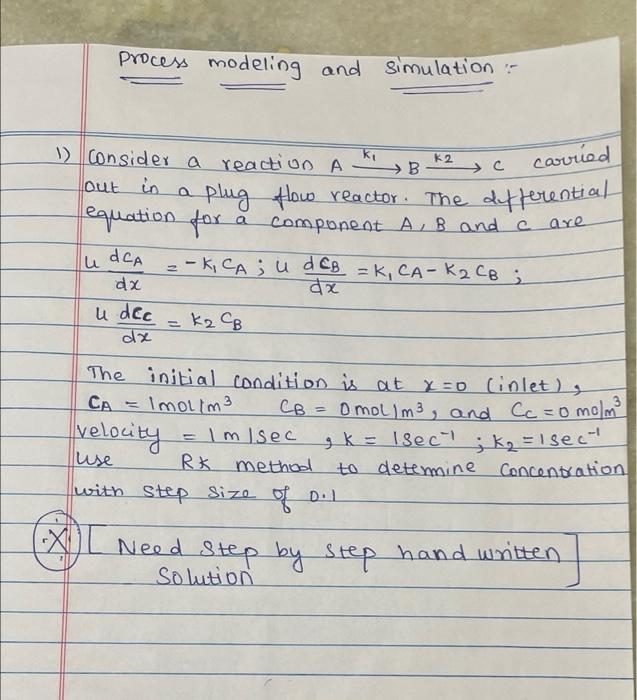 Process modeling and Simulation :-
1) Consider a reaction A —K1→ B —K2→ C carried
out in a plug flow reactor. The differential
equation for a component A, B and C are
u dCA/dx = -K1 CA ; u dCB/dx = K1 CA - K2 CB ;
u dCc/dx = K2 CB
The initial condition is at x=0 (inlet),
CA = 1mol/m³ CB = 0mol/m³, and Cc = 0 mol/m³
velocity = 1m/sec , k = 1sec⁻¹ ; K2 = 1sec⁻¹
Use RK method to determine concentration
with step size of 0.1
X [ Need step by step handwritten
Solution ]